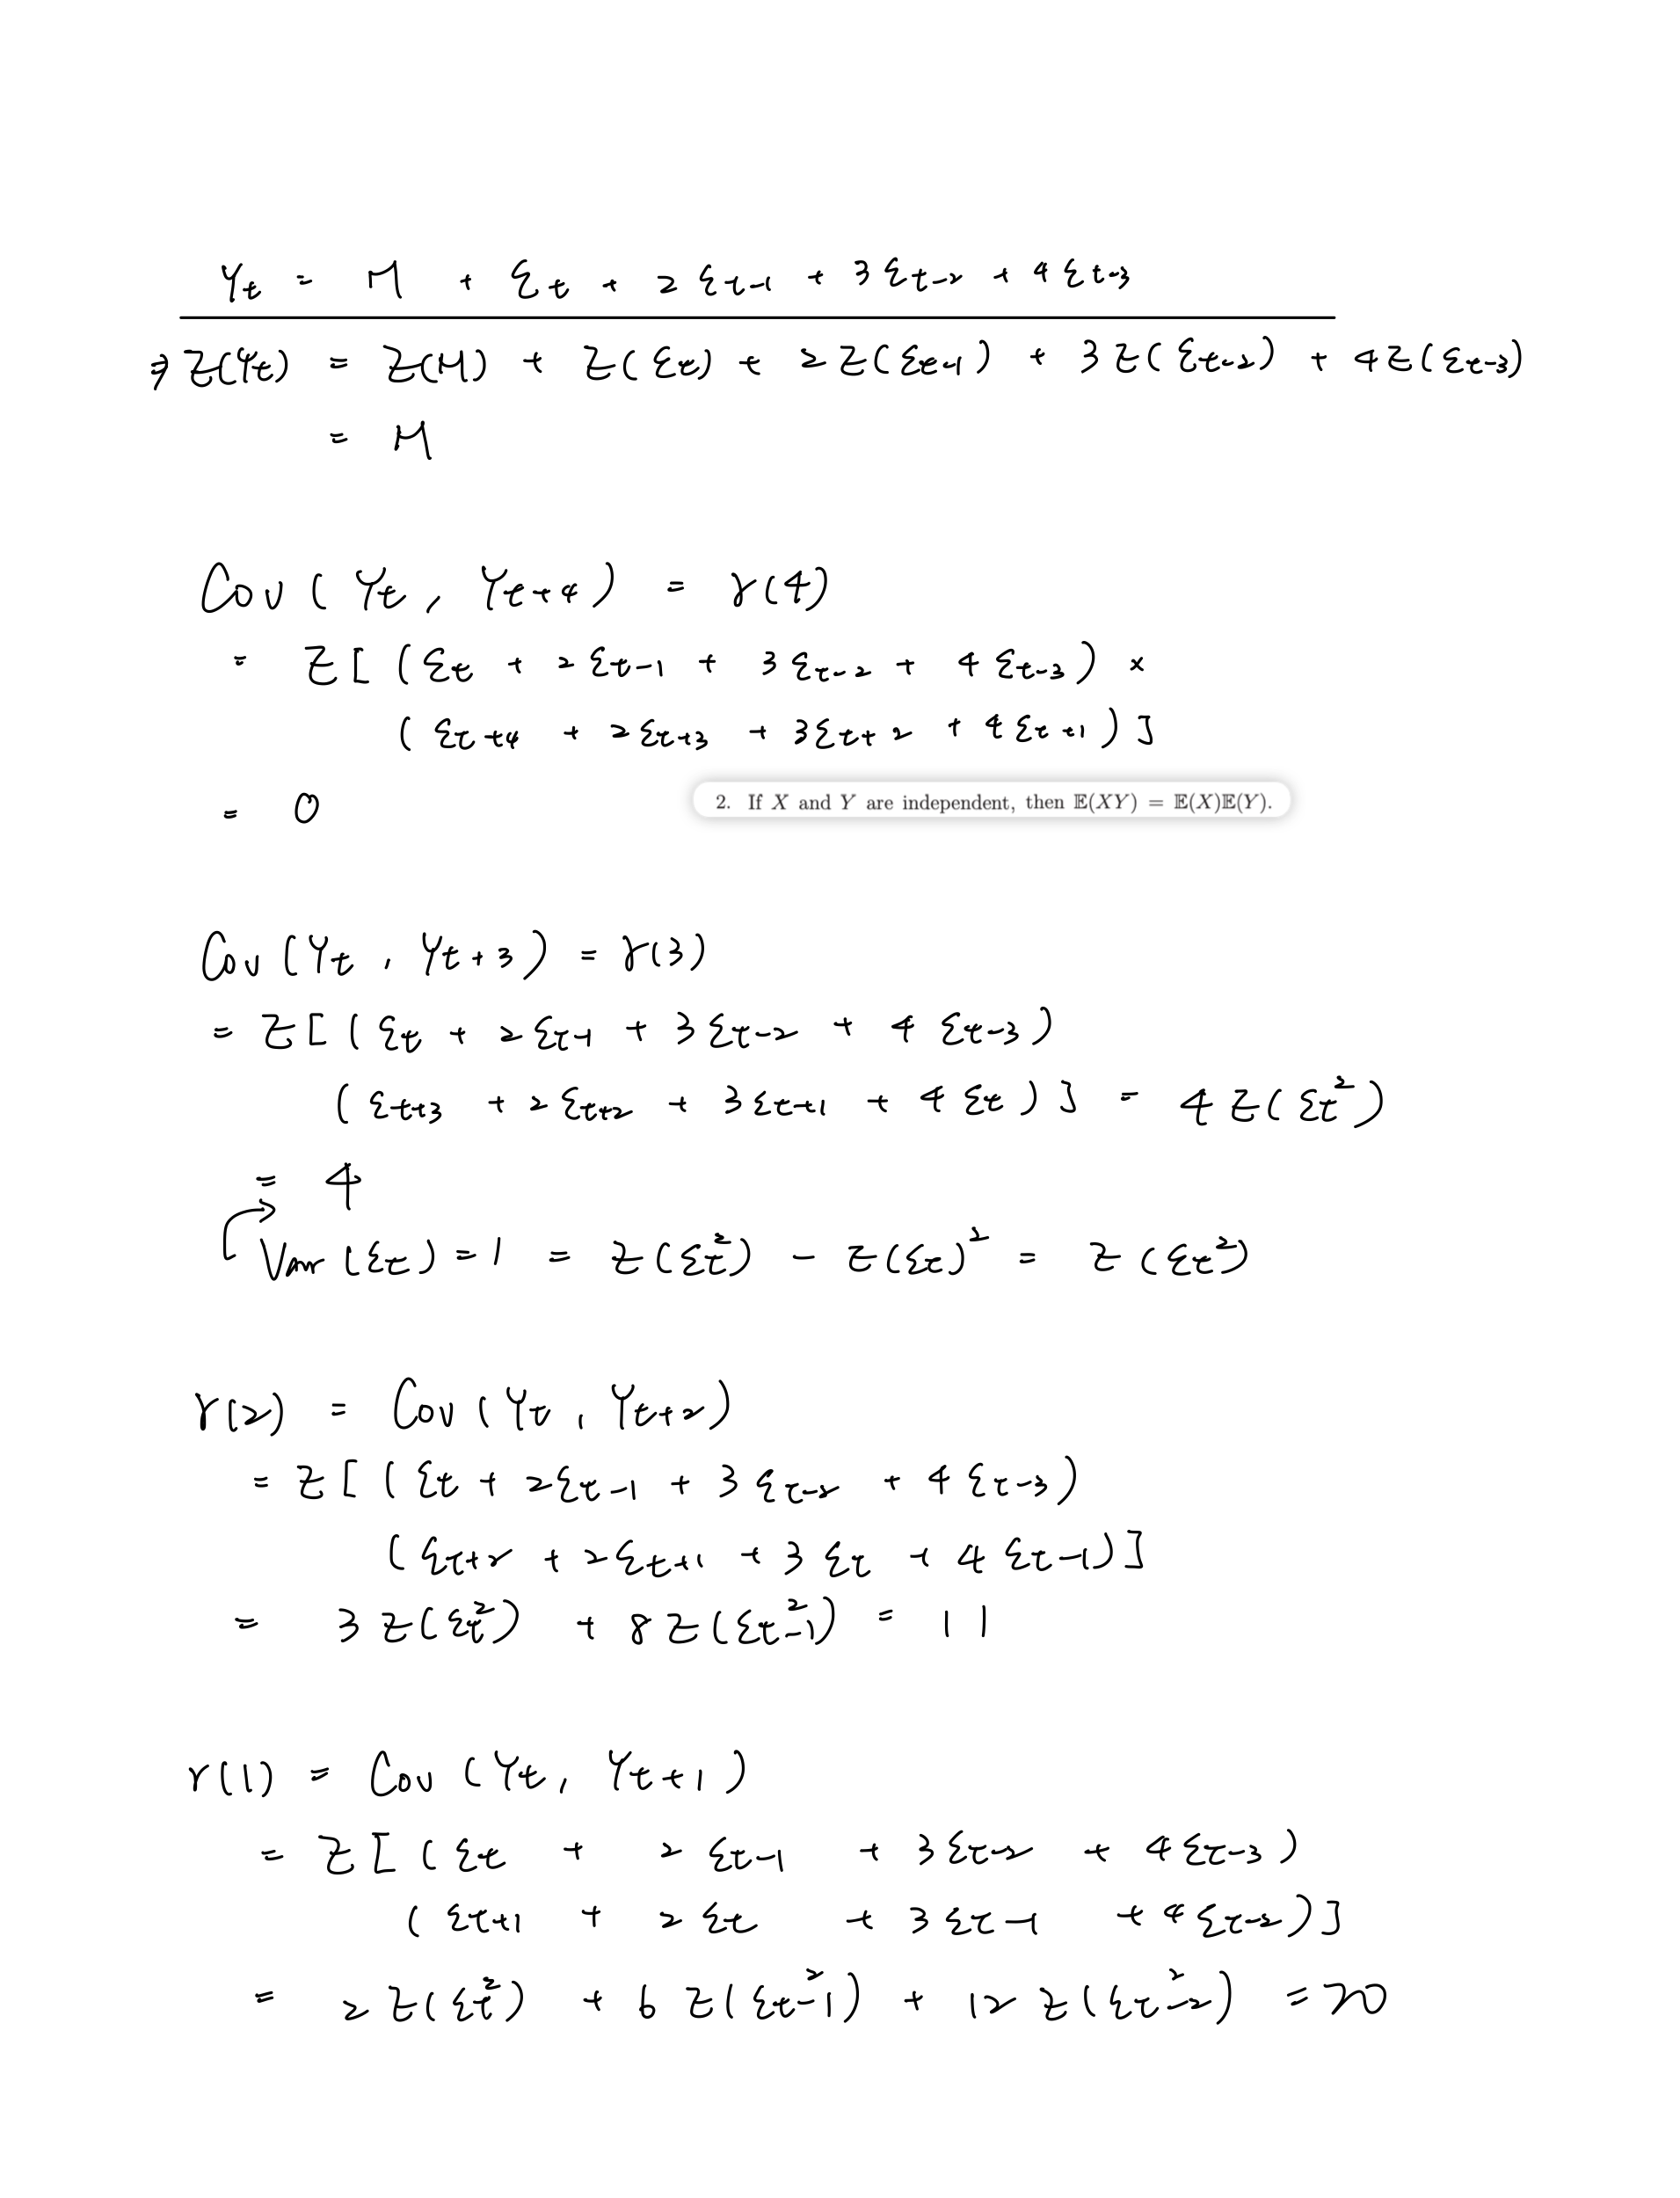 Yt = M + εt + 2εt-1 + 3εt-2 + 4εt-3
⇒ E(Yt) = E(M) + E(εt) + 2E(εt-1) + 3E(εt-2) + 4E(εt-3)
= M
Cov(Yt, Yt+4) = γ(4)
= E[(εt + 2εt-1 + 3εt-2 + 4εt-3) ×
(εt+4 + 2εt+3 + 3εt+2 + 4εt+1)]
= 0
2. If X and Y are independent, then 𝔼(XY) = 𝔼(X)𝔼(Y).
Cov(Yt, Yt+3) = γ(3)
= E[(εt + 2εt-1 + 3εt-2 + 4εt-3)
(εt+3 + 2εt+2 + 3εt+1 + 4εt)] = 4E(εt²)
= 4
Var(εt) = 1 = E(εt²) - E(εt)² = E(εt²)
γ(2) = Cov(Yt, Yt+2)
= E[(εt + 2εt-1 + 3εt-2 + 4εt-3)
(εt+2 + 2εt+1 + 3εt + 4εt-1)]
= 3E(εt²) + 8E(εt-1²) = 11
γ(1) = Cov(Yt, Yt+1)
= E[(εt + 2εt-1 + 3εt-2 + 4εt-3)
(εt+1 + 2εt + 3εt-1 + 4εt-2)]
= 2E(εt²) + 6E(εt-1²) + 12E(εt-2²) = 20